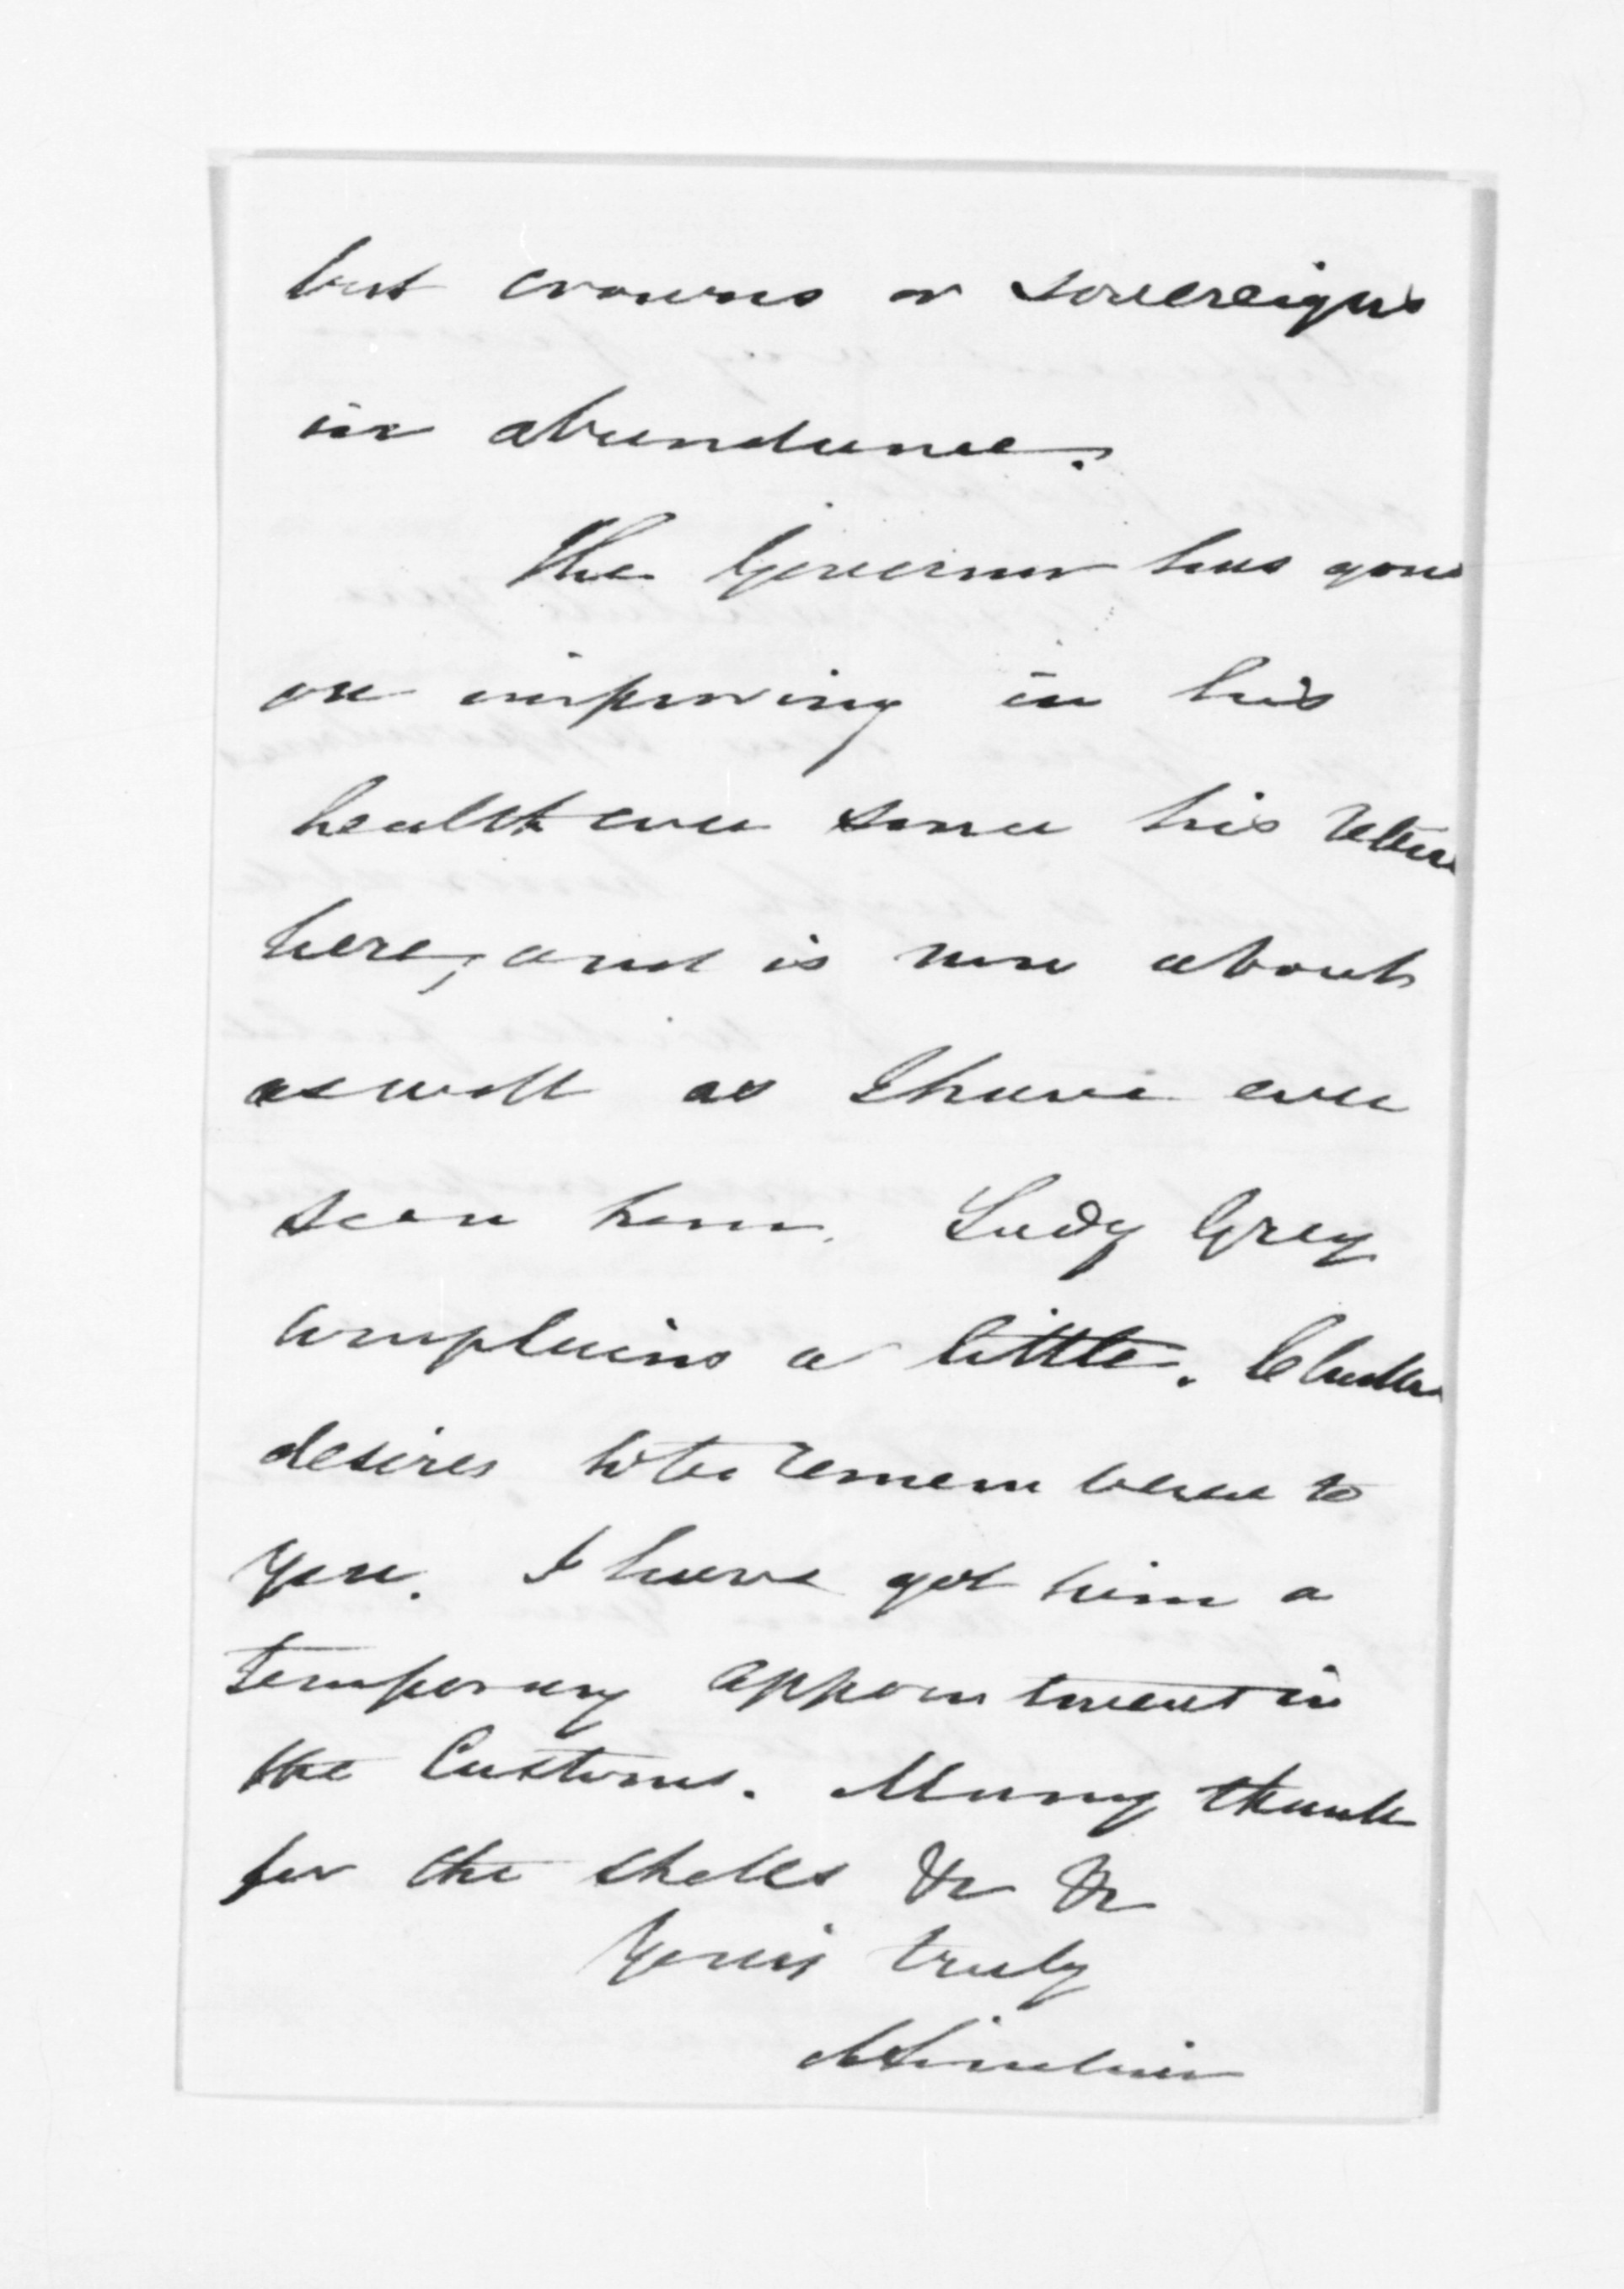 but crowns or sovereigns
in abundance.
The Governor has gone
on improving in his
health ever since his return
here, and is now about
as well as I have ever
seen him. Lady Grey
complains a little.
desires to be remembered to
you. I have got him a
temporary appointment in
the Customs. Many thanks
for the shells &c &c
Yours truly
A Sinclair